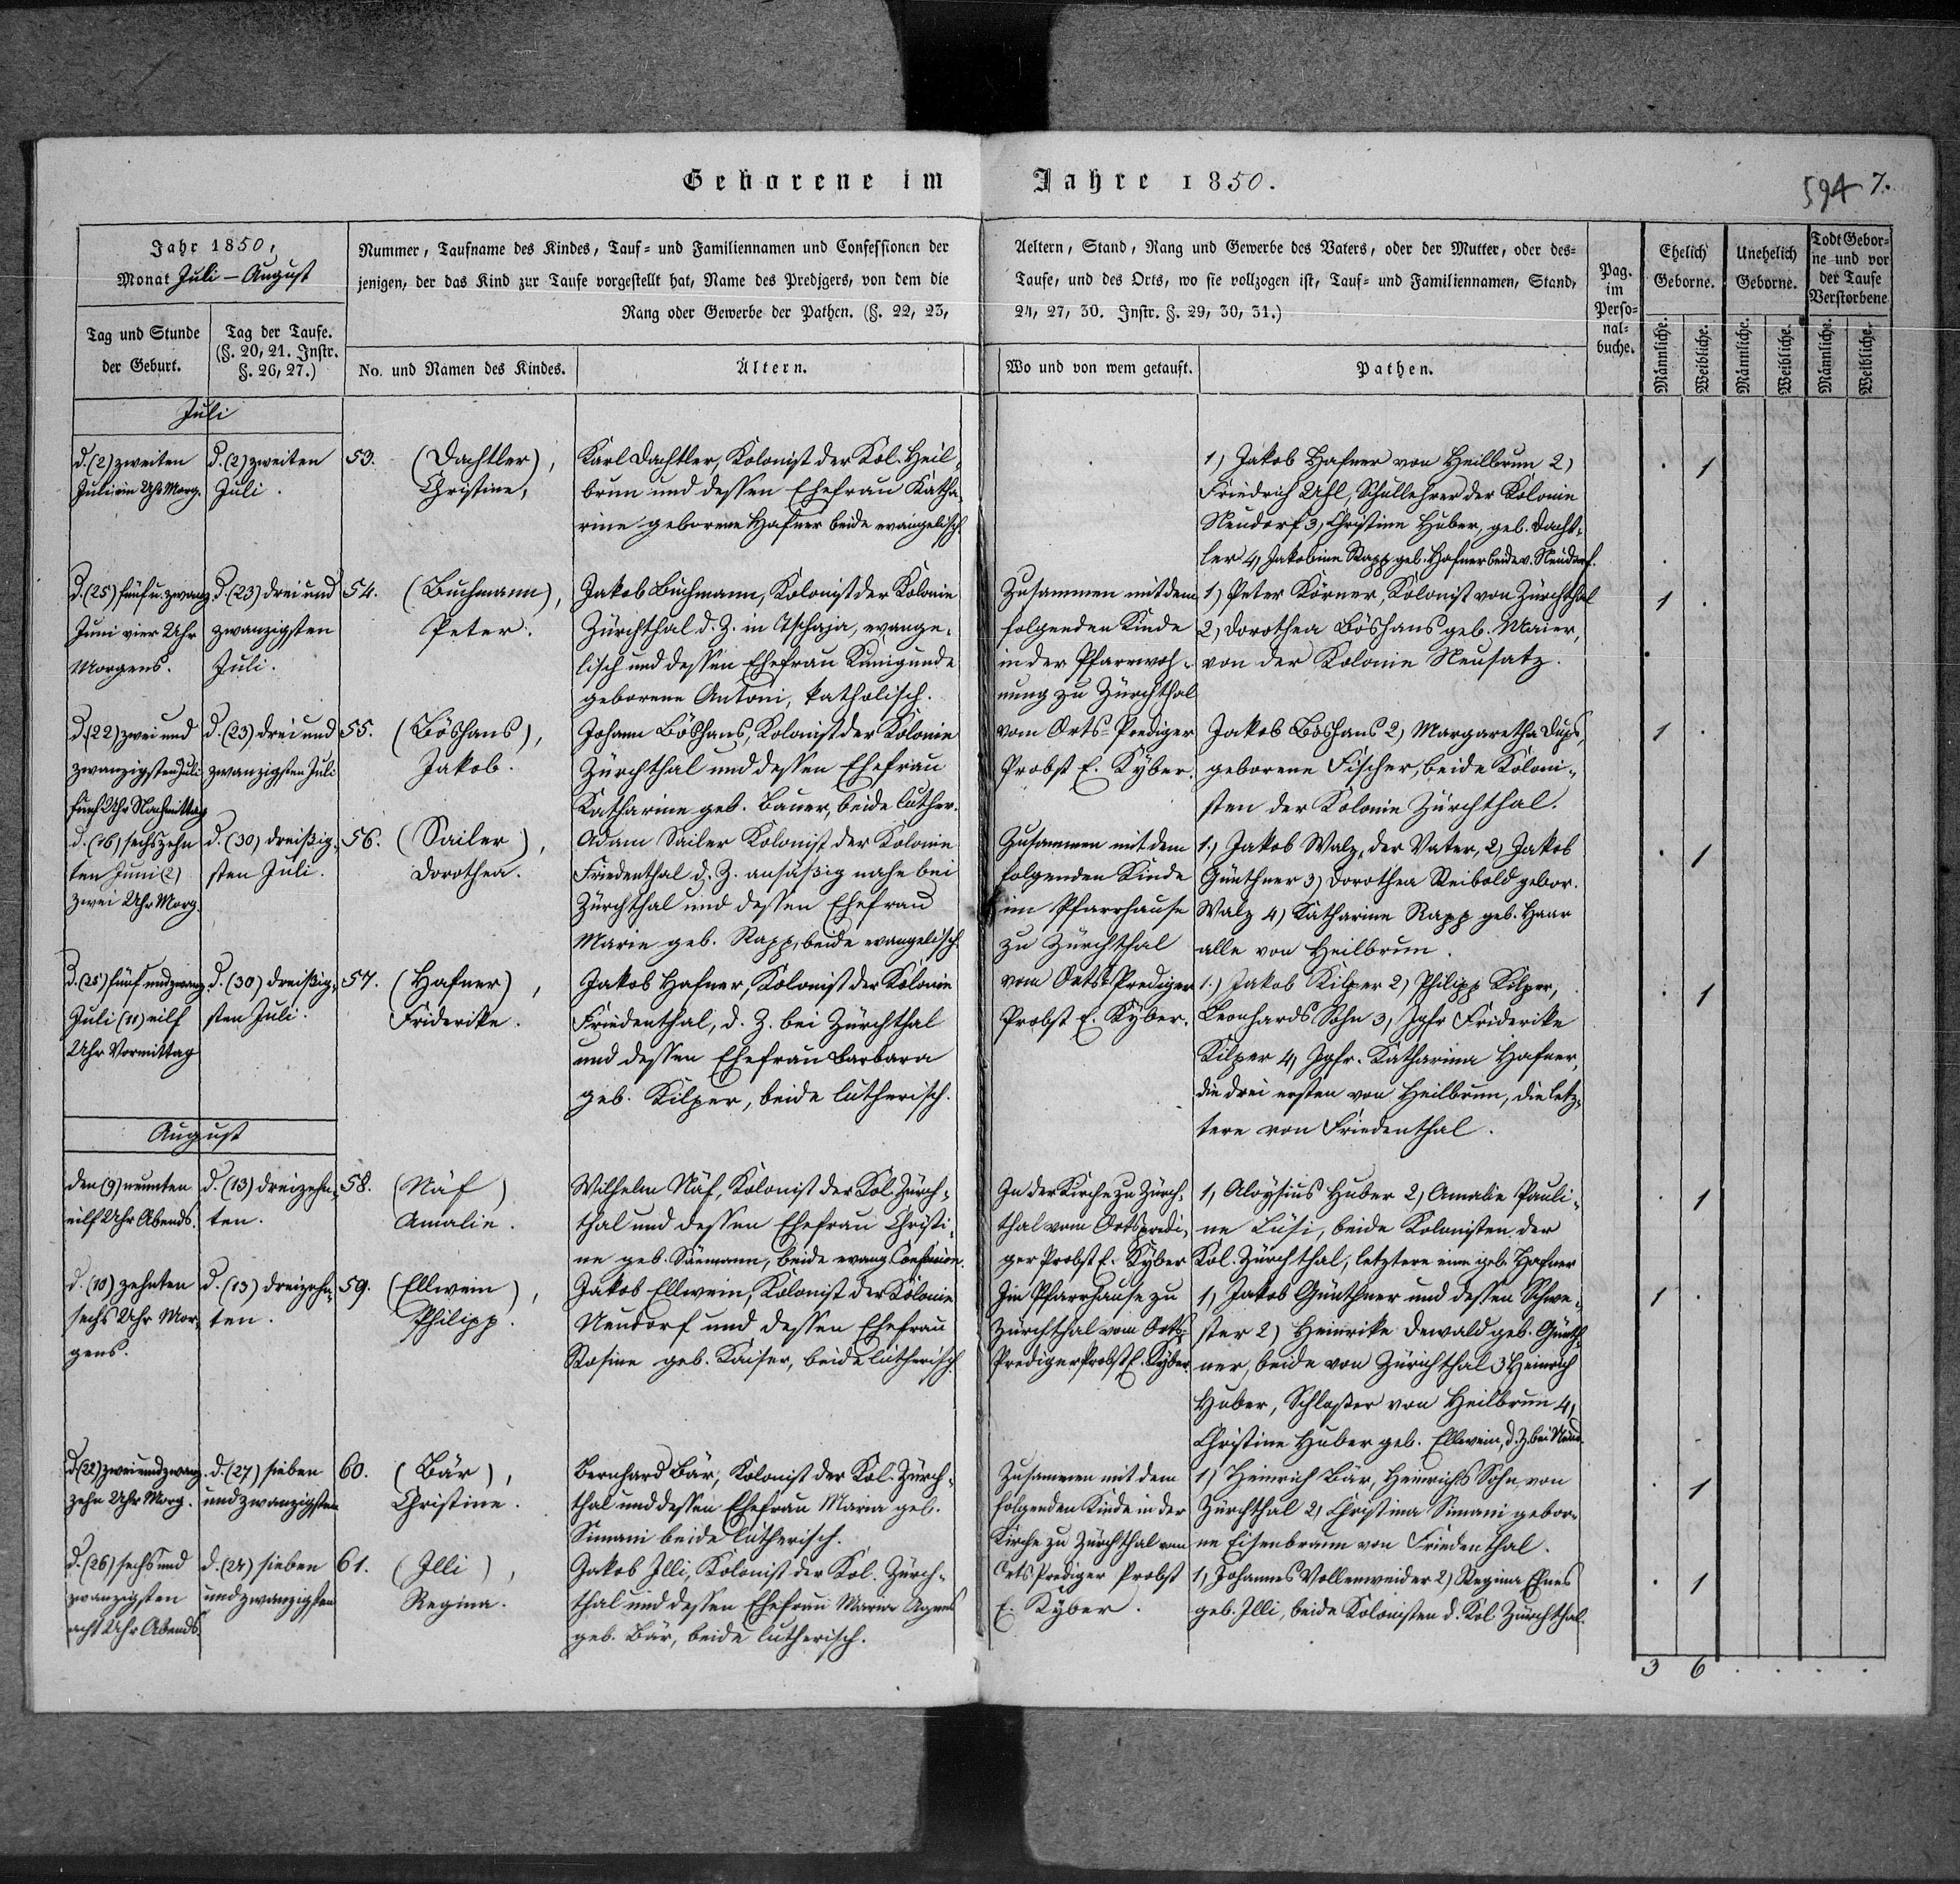 Geborene im Jahre 1850.
594 7.
Jahr 1850,
Monat Juli – August
Tag und Stunde
der Geburt.
Tag der Taufe.
(§. 20, 21. Instr.
§. 26, 27.)
Nummer, Taufname des Kindes, Tauf- und Familiennamen und Confessionen der
jenigen, der das Kind zur Taufe vorgestellt hat, Name des Predjgers, von dem die
Rang oder Gewerbe der Pathen. (§. 22, 23,
No. und Namen des Kindes.
Ältern.
Aeltern, Stand, Rang und Gewerbe des Vaters, oder der Mutter, oder des-
Taufe, und des Orts, wo sie vollzogen ist, Tauf- und Familiennamen, Stand,
24, 27, 30. Instr. §. 29, 30, 31.)
Wo und von wem getauft.
Pathen.
Pag.
im
Perso-
nal-
buche.
Ehelich
Geborne.
Unehelich
Geborne.
Todt Gebor-
ne und vor
der Taufe
Verstorbene
Männliche.
Weibliche.
Männliche.
Weibliche.
Männliche.
Weibliche.
Juli
d. (2) zweiten
Juli ein Uhr Morg.
d. (2) zweiten
Juli.
53. (Dachtler),
Christine,
Karl Dachtler, Kolonist der Kol. Heil-
brun und dessen Ehefrau Katha-
rine geborene Hafner beide evangelisch.
1) Jakob Hafner von Heilbrun 2)
Friedrich Uhl, Schullehrer der Kolonie
Neudorf 3) Christine Huber, geb. Dacht-
ler 4) Jakobine Rapp geb. Hafner beide v. Neudorf.
1
d. (25) fünf u. zwanz
Juni vier Uhr
Morgens.
d. (23) drei und
zwanzigsten
Juli.
54. (Buchmann),
Peter.
Jakob Buchmann, Kolonist der Kolonie
Zürchthal d. Z. in Tschaja, evange-
lisch und dessen Ehefrau Kunigunde
geborene Antoni, katholisch.
Zusammen mit dem
folgenden Kinde
in der Pfarrwoh-
nung zu Zürchthal
1) Peter Körner, Kolonist von Zürchthal
2) Dorothea Böshans geb. Maier,
von der Kolonie Neusatz.
1
d. (22) zwei und
zwanzigsten Juli
fünf Uhr Nachmittag
d. (23) drei und
zwanzigsten Juli
55. (Böshans),
Jakob.
Johann Böshans, Kolonist der Kolonie
Zürchthal und dessen Ehefrau
Katharine geb. Bauer, beide luther.
vom Orts-Prediger
Probst E. Kyber.
Jakob Böshans 2) Margaretha Dups,
geborene Fischer, beide Koloni-
sten der Kolonie Zürchthal.
1
d. (16) sechszehn
ten Juni (2)
zwei Uhr Morg.
d. (30) dreißig-
sten Juli.
56. (Sailer),
Dorothea.
Adam Sailer Kolonist der Kolonie
Friedenthal d. Z. ansäßig nahe bei
Zürchthal und dessen Ehefrau
Marie geb. Rapp, beide evangelisch.
Zusammen mit dem
folgenden Kinde
im Pfarrhause
zu Zürchthal
1.) Jakob Walz, der Vater, 2) Jakob
Günthner 3) Dorothea Reibold gebor.
Walz 4) Katharine Rapp geb. Haar
alle von Heilbrun.
1
d. (25) fünf und zwanz
Juli (11) eilf
Uhr Vormittag
d. (30) dreißig-
sten Juli.
57. (Hafner),
Friderike.
Jakob Hafner, Kolonist der Kolonie
Friedenthal, d. Z. bei Zürchthal
und dessen Ehefrau Barbara
geb. Kilper, beide lutherisch.
vom Orts-Prediger
Probst E. Kyber.
1.) Jakob Kilper 2) Philipp Kilper,
Leonhards Sohn 3) Jgfr Friderike
Kilper 4) Jgfr. Katharina Hafner,
die drei ersten von Heilbrun, die letz-
tere von Friedenthal.
1
August
den (9) neunten
eilf Uhr Abends.
d. (13) dreizehn-
ten.
58. (Näf)
Amalie.
Wilhelm Näf, Kolonist der Kol. Zürch-
thal und dessen Ehefrau Christi-
ne geb. Säemann, beide evang. Confession.
In der Kirche zu Zürch-
thal vom Ortspredi-
ger Probst E. Kyber
1) Aloysius Huber 2) Amalie Pauli-
ne Lüsi, beide Kolonisten der
Kol. Zürchthal, letztere eine geb. Hafner
1
d. (10) zehnten
sechs Uhr Mor-
gens.
d. (13) dreizehn-
ten.
59. (Ellwein),
Philipp.
Jakob Ellwein, Kolonist der Kolonie
Neudorf und dessen Ehefrau
Rosine geb. Kaiser, beide lutherisch.
Im Pfarrhause zu
Zürchthal vom Orts-
Prediger Probst E. Kyber.
1) Jakob Günthner und dessen Schwe-
ster 2) Heinrike Dewald geb. Günth-
ner, beide von Zürichthal 3 Heinrich
Huber, Schlosser von Heilbrun 4)
Christine Huber geb. Ellwein, d. Z. bei Neud.
1
d. (22) zwei und zwanz.
zehn Uhr Morg.
d. (27) sieben
und zwanzigsten
60. (Bär),
Christine.
Bernhard Bär, Kolonist der Kol. Zürch-
thal und dessen Ehefrau Maria geb.
Simani beide lutherisch.
Zusammen mit dem
folgenden Kinde in der
Kirche zu Zürchthal vom
1) Heinrich Bär, Heinrichs Sohn, von
Zürchthal 2) Christina Simani gebor-
ne Eisenbraun von Friedenthal.
1
d. (26) sechs und
zwanzigsten
acht Uhr Abends.
d. (27) sieben
und zwanzigsten
61. (Illi),
Regina.
Jakob Illi, Kolonist der Kol. Zürch-
thal und dessen Ehefrau Maria Agnes
geb. Bär, beide lutherisch.
Orts Prediger Probst
E. Kyber.
1) Johannes Vollenweider 2) Regina
geb. Illi, beide Kolonisten d. Kol Zürchthal.
1
3 6